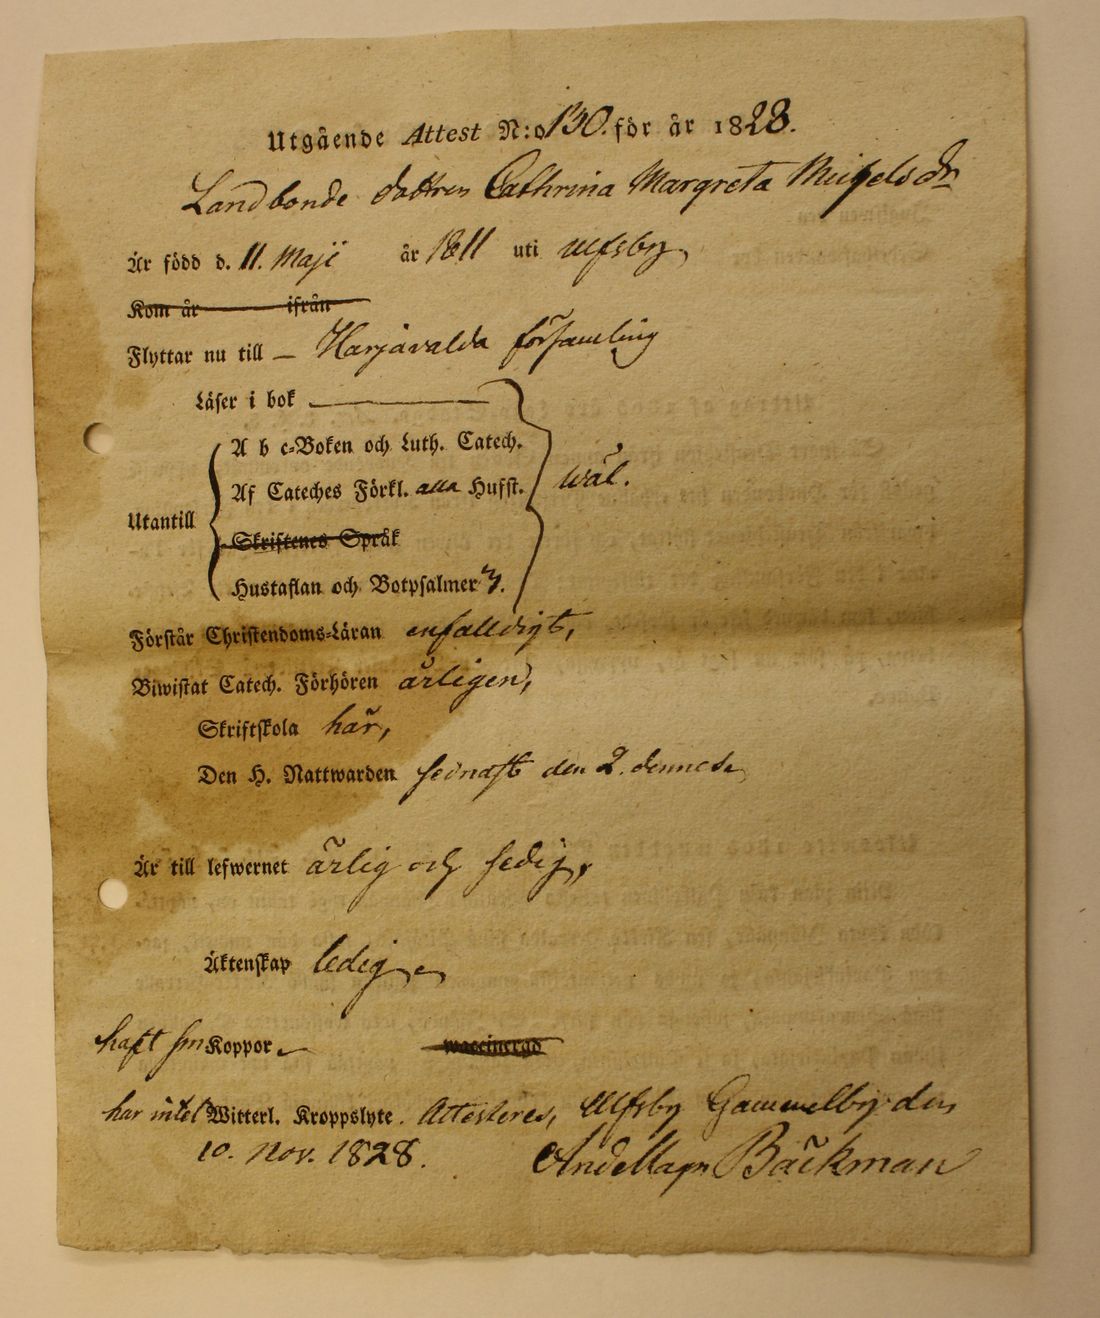 Utgående Attest N:o 130. för år 1828.
Landbonde dottren Cathrina Margreta Michelsdr
Är född d. 11. Maji år 1811 uti Ulfsby,
Kom år ifrån
Flyttar nu till – Harjavalda församling
Läser i bok
A b c-Boken och Luth. Catech.
Af Cateches Förkl. alla Hufst. wäl.
Utantill
Skriftenes Språk
Hustaflan och Botpsalmer 3.
Förstår Christendoms-Läran enfalldigt,
Biwistat Catech. Förhören årligen,
Skriftskola här,
Den H. Nattwarden sednast den 2. dennes.
Är till lefwernet ärlig och sedig,
Äktenskap ledig,
haft sm Koppor waccinerad
har intet Witterl. Kroppslyte. Attesteres, Ulfsby Gammelby den
10. Nov. 1828. And Magn Bäckman